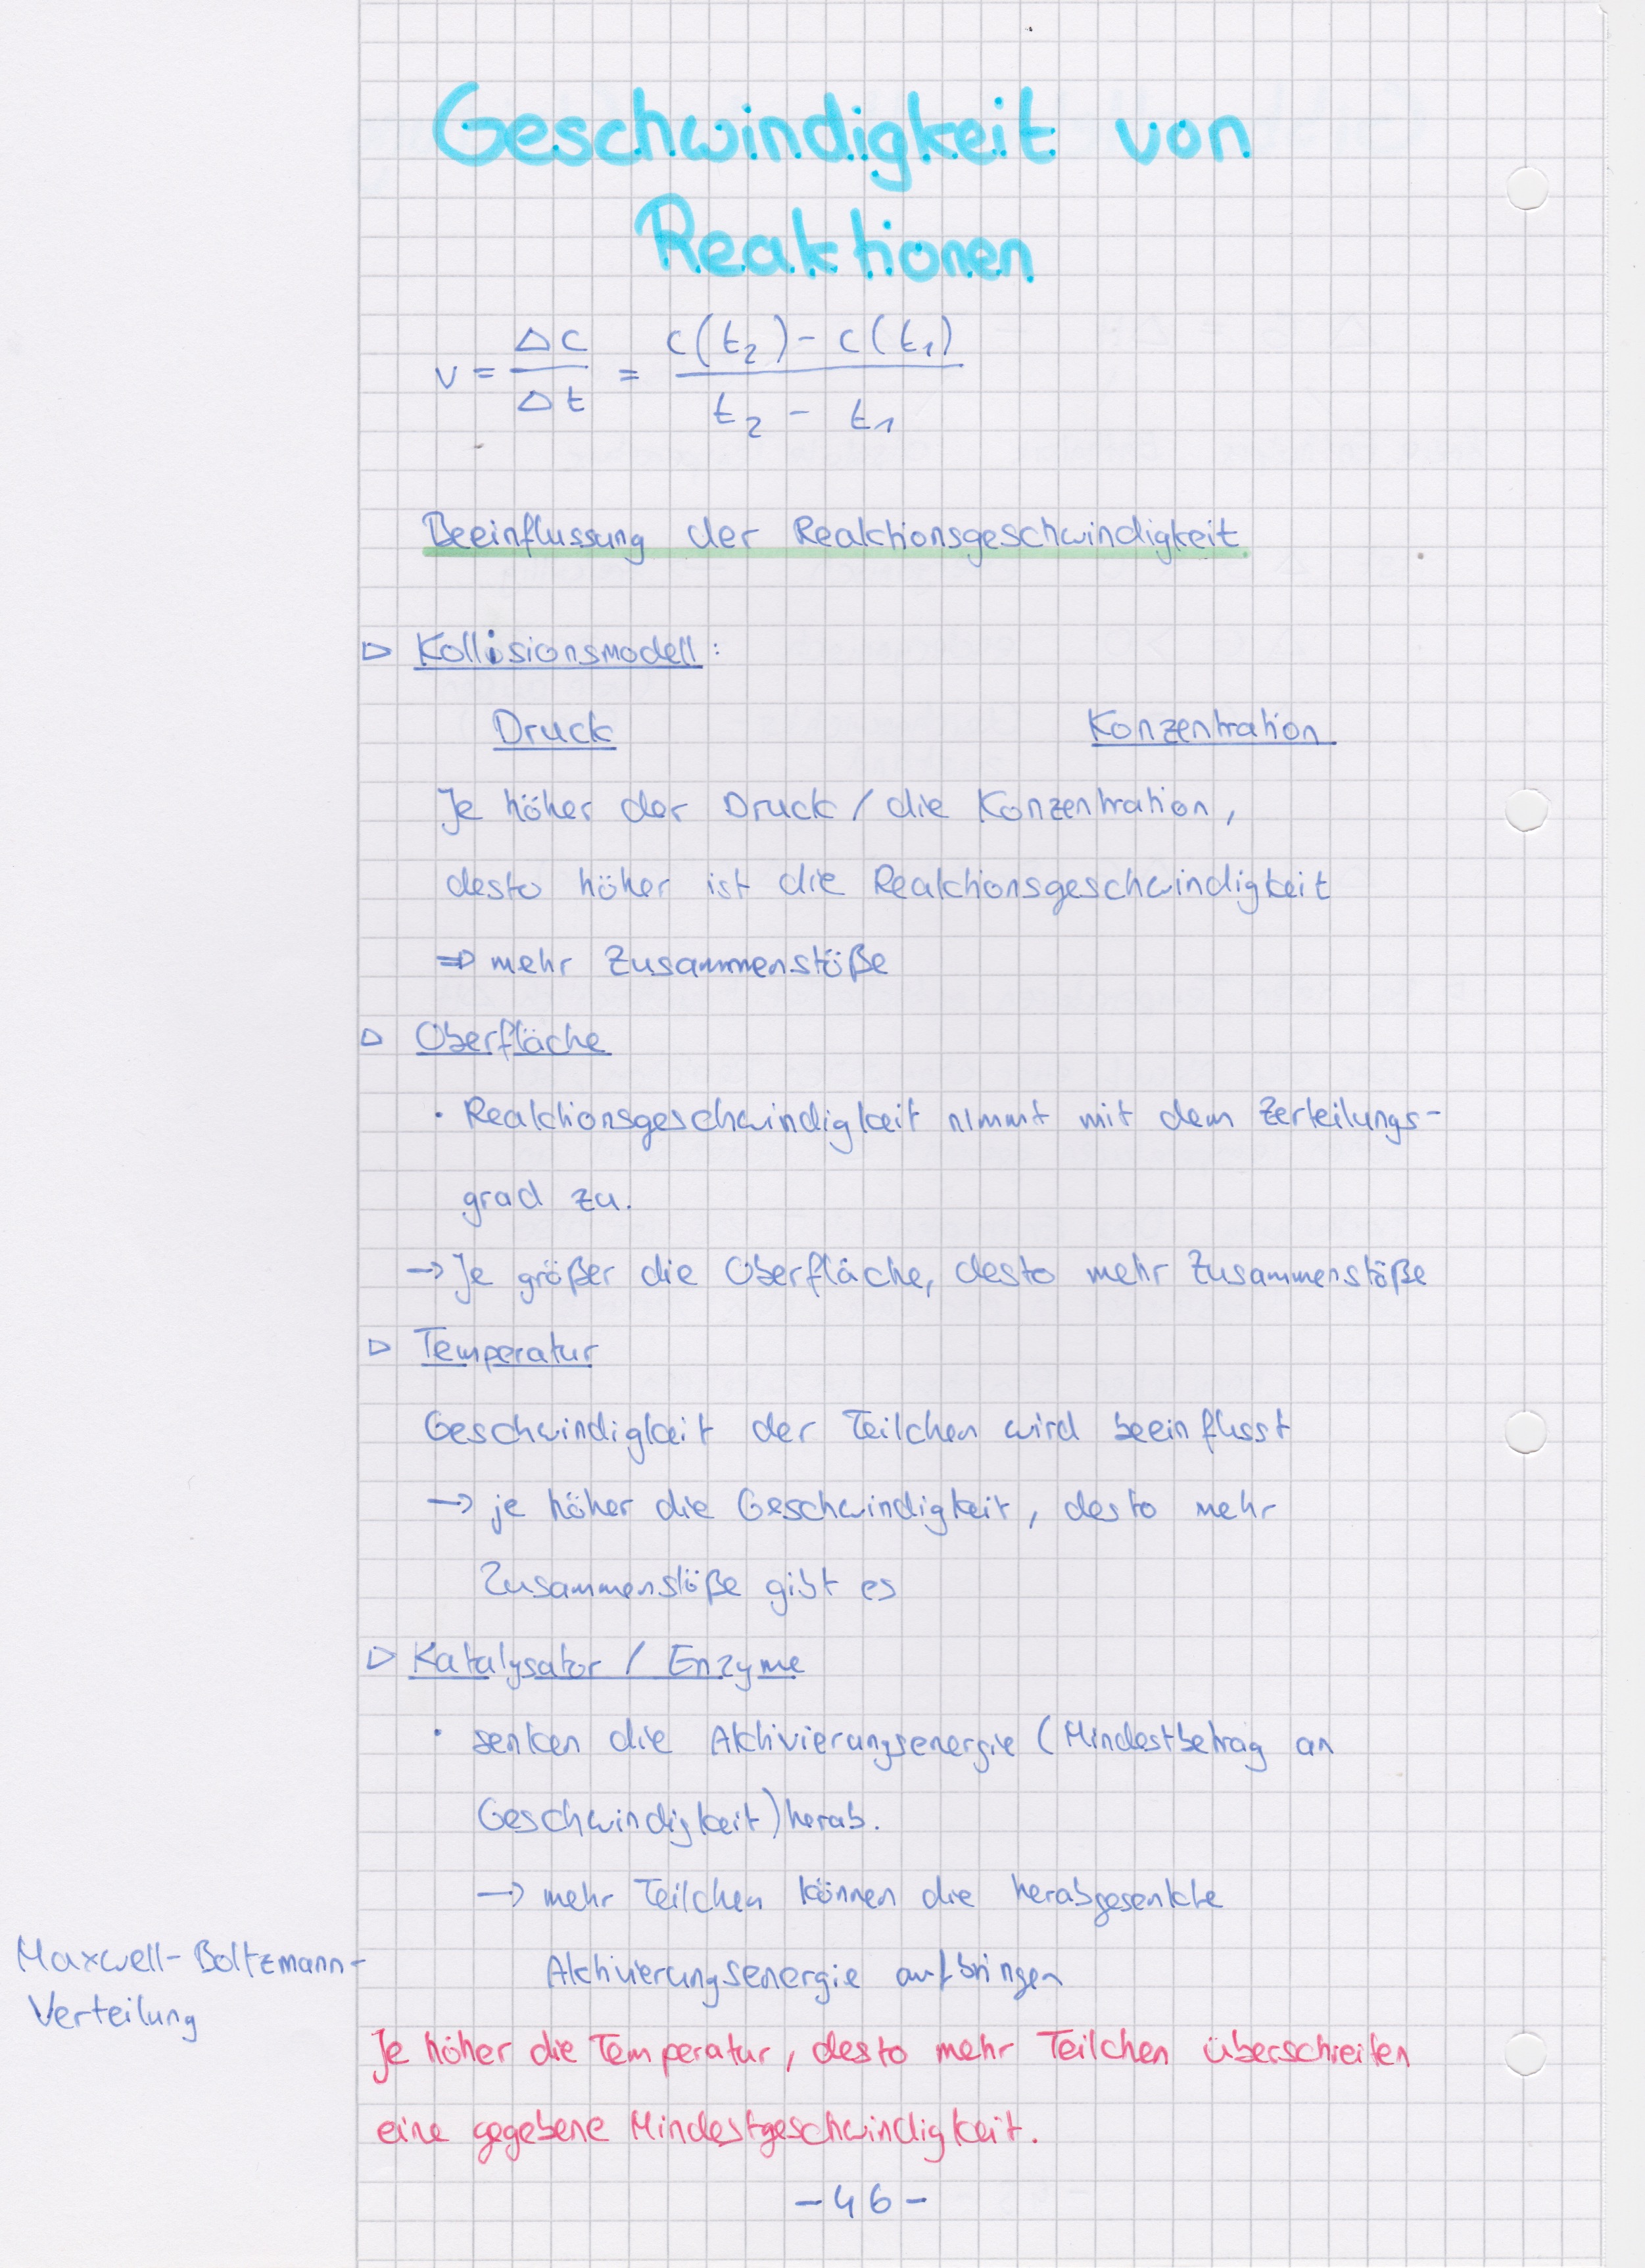 Geschwindigkeit von
Reaktionen
v = Δc / Δt = c(t₂) - c(t₁) / t₂ - t₁
Beeinflussung der Reaktionsgeschwindigkeit
▷ Kollisionsmodell:
Druck Konzentration
Je höher der Druck / die Konzentration,
desto höher ist die Reaktionsgeschwindigkeit
⇒ mehr Zusammenstöße
▷ Oberfläche
· Reaktionsgeschwindigkeit nimmt mit dem Zerteilungs-
grad zu.
→ Je größer die Oberfläche, desto mehr Zusammenstöße
▷ Temperatur
Geschwindigkeit der Teilchen wird beeinflusst
→ je höher die Geschwindigkeit, desto mehr
Zusammenstöße gibt es
▷ Katalysator / Enzyme
· senken die Aktivierungsenergie (Mindestbetrag an
Geschwindigkeit) herab.
→ mehr Teilchen können die herabgesenkte
Aktivierungsenergie aufbringen
Maxwell-Boltzmann-
Verteilung
Je höher die Temperatur, desto mehr Teilchen überschreiten
eine gegebene Mindestgeschwindigkeit.
- 46 -